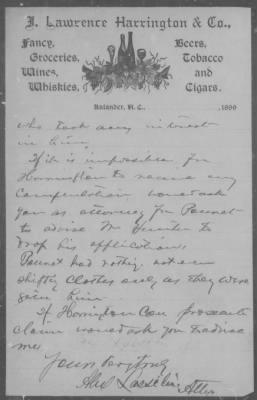 J. Lawrence Harrington & Co.,
Fancy Groceries, Wines, Whiskies,
Beers, Tobacco and Cigars.
Aulander, N. C., 1899
who took any interest
in him.
If it is impossible for
Harrington to receive any
Compensation would ask
you as attorney for
to advise Mr to
drop his application,
had nothing not even
shifty clothes only as they were
given him.
If Harrington Can prosecute
claim would ask you to advise
me.
Yours
Atty.